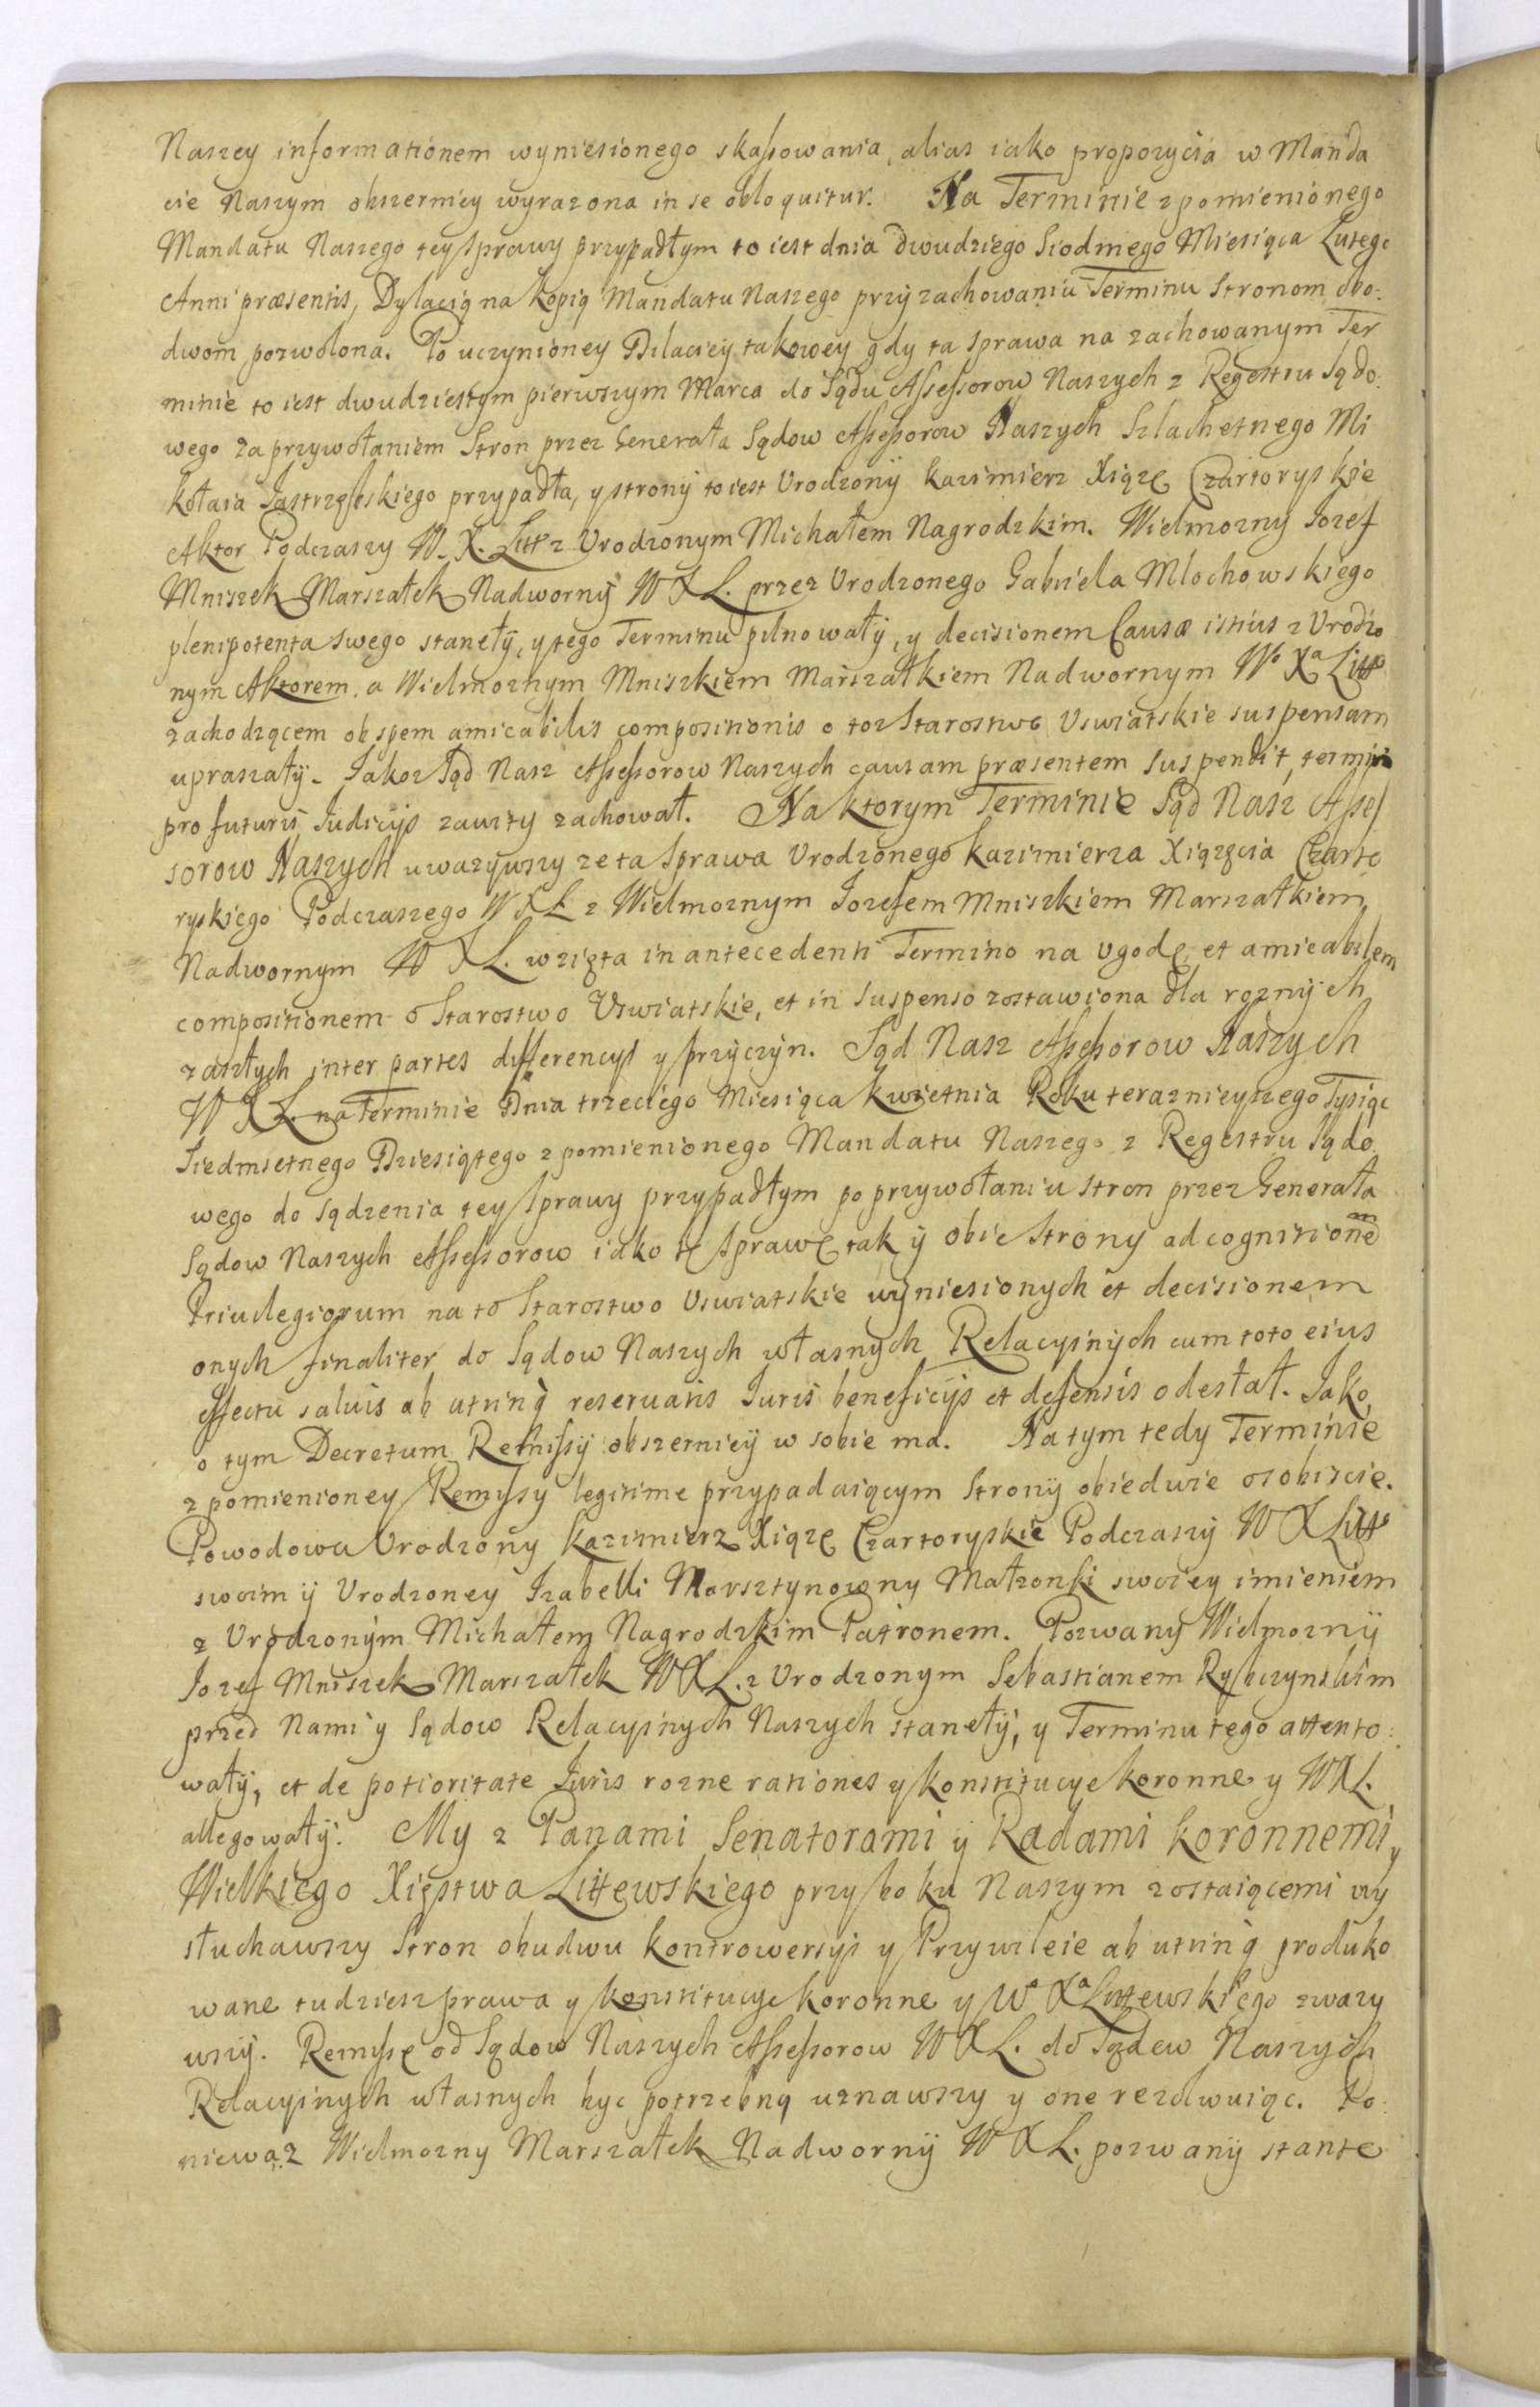 Naszey informationem wyniesionego skassowania, alias iako propozycia w Manda
cie Naszym obszerniey wyrazona in se obloquitur. Na Terminie zpomienionego
Mandatu Naszego tey sprawy przypadłym to iest dnia dwudziego Siodmego Miesiąca Lutego
Anni præsentis, Dylacią na kopią Mandatu Naszego przy zachowaniu Terminu Stronom obo:
dwom pozwolona. Po uczynioney Dilaciey takowey gdy ta sprawa na zachowanym Ter
minie to iest dwudziestym pierwszym Marca do Sądu Assessorow Naszych z Regestru Sądo:
wego za przywołaniem Stron przez Generała Sądow Assessorow Naszych Szlachetnego Mi
kołaia Jastrzębskiego przypadła, y strony to iest Vrodzony Kazimierz Xiąże Czartoryskie
Aktor Podczaszy W. X. Litt z Vrodzonym Michałem Nagrodzkim. Wielmozny Iozef
Mniszek Marszałek Nadworny W X L. przez Vrodzonego Gabriela Mlochowskiego
plenipotenta swego staneły, y tego Terminu pilnowały, y decisionem Causæ istius z Vrodzo
nym Aktorem, a Wielmoznym Mniszkiem Marszałkiem Nadwornym Wo Xa Litto
zachodzącem ob spem amicabilis compositionis o toz Starostwo Uswiatskie suspensam
upraszały. Iakoz Sąd Nasz Assessorow Naszych causam præsentem suspendit, termin
pro futuris Iudicijs zawity zachował. Na ktorym Terminie Sąd Nasz Asses
sorow Naszych uwazywszy ze ta Sprawa Vrodzonego Kazimierza Xiązęcia Czarto
ryskiego Podczaszego W X L z Wielmoznym Iozefem Mniszkiem Marszałkiem
Nadwornym W X L. wzięta in antecedenti Termino na Vgodę et amicabilem
compositionem o Starostwo Vswiatskie, et in suspenso zostawiona dla roznych
zaszłych inter partes differencyi y przyczyn. Sąd Nasz Assessorow Naszych
W X L. na Terminie Dnia trzeciego Miesiąca Kwietnia Roku teraznieyszego Tysiąc
Siedmsetnego Dziesiątego zpomienionego Mandatu Naszego z Regestru Sądo
wego do sądzenia tey sprawy przypadłym po przywołaniu stron przez Generała
Sądow Naszych Assessorow iako tę sprawę tak y obie Strony ad cognitionem
Priuilegiorum na to Starostwo Vswiatskie wyniesionych et decisionem
onych finaliter do Sądow Naszych własnych Relacyinych cum toto eius
effectu saluis ab utrinq reseruatis Iuris beneficijs et defensis odesłał. Iako
o tym Decretum Remissy obszerniey w sobie ma. Na tym tedy Terminie
zpomienioney Remyssy legitime przypadaiącym Strony obiedwie osobiscie.
Powodowa Vrodzony Kazimierz Xiąże Czartoryskie Podczaszy W X Litto
swoim y Vrodzoney Izabelli Morsztynowny Małzonki swoiey imieniem
z Vrodzonym Michałem Nagrodzkim Patronem. Pozwany Wielmozny
Iozef Mniszek Marszałek W X L. z Vrodzonym Sebastianem Rybczynskim
przed Nami y Sądow Relacyinych Naszych staneły, y Terminu tego attento:
wały, et de potioritate Iuris rozne rationes y Konstitucye Koronne y W X L.
allegowały. My z Panami Senatorami y Radami Koronnemi y
Wielkiego Xięstwa Littewskiego przy boku Naszym zostaiącemi wy
słuchawszy Stron obudwu kontrowersyi y Przywileie ab utrinq produko
wane tudziesz prawa y Konstitucye Koronne y Wo Xa Littewskiego zwazy
wszy. Remyssę od Sądow Naszych Assessorow W X L. do Sądow Naszych
Relacyinych własnych byc potrzebną uznawszy y one rezolwuiąc. Po
niewaz Wielmozny Marszałek Nadworny W X L. pozwany stante